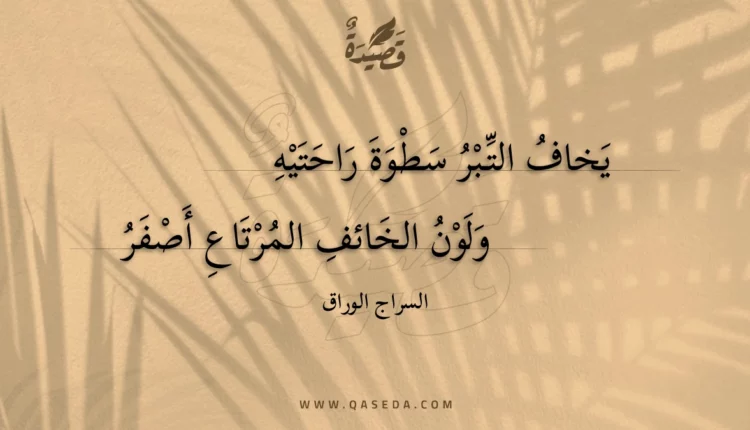 قَصِيْدَةٌ
يَخافُ التِّبْرُ سَطْوَةَ رَاحَتَيْهِ
وَلَوْنُ الخَائفِ المُرْتَاعِ أَصْفَرُ
السراج الوراق
WWW.QASEDA.COM